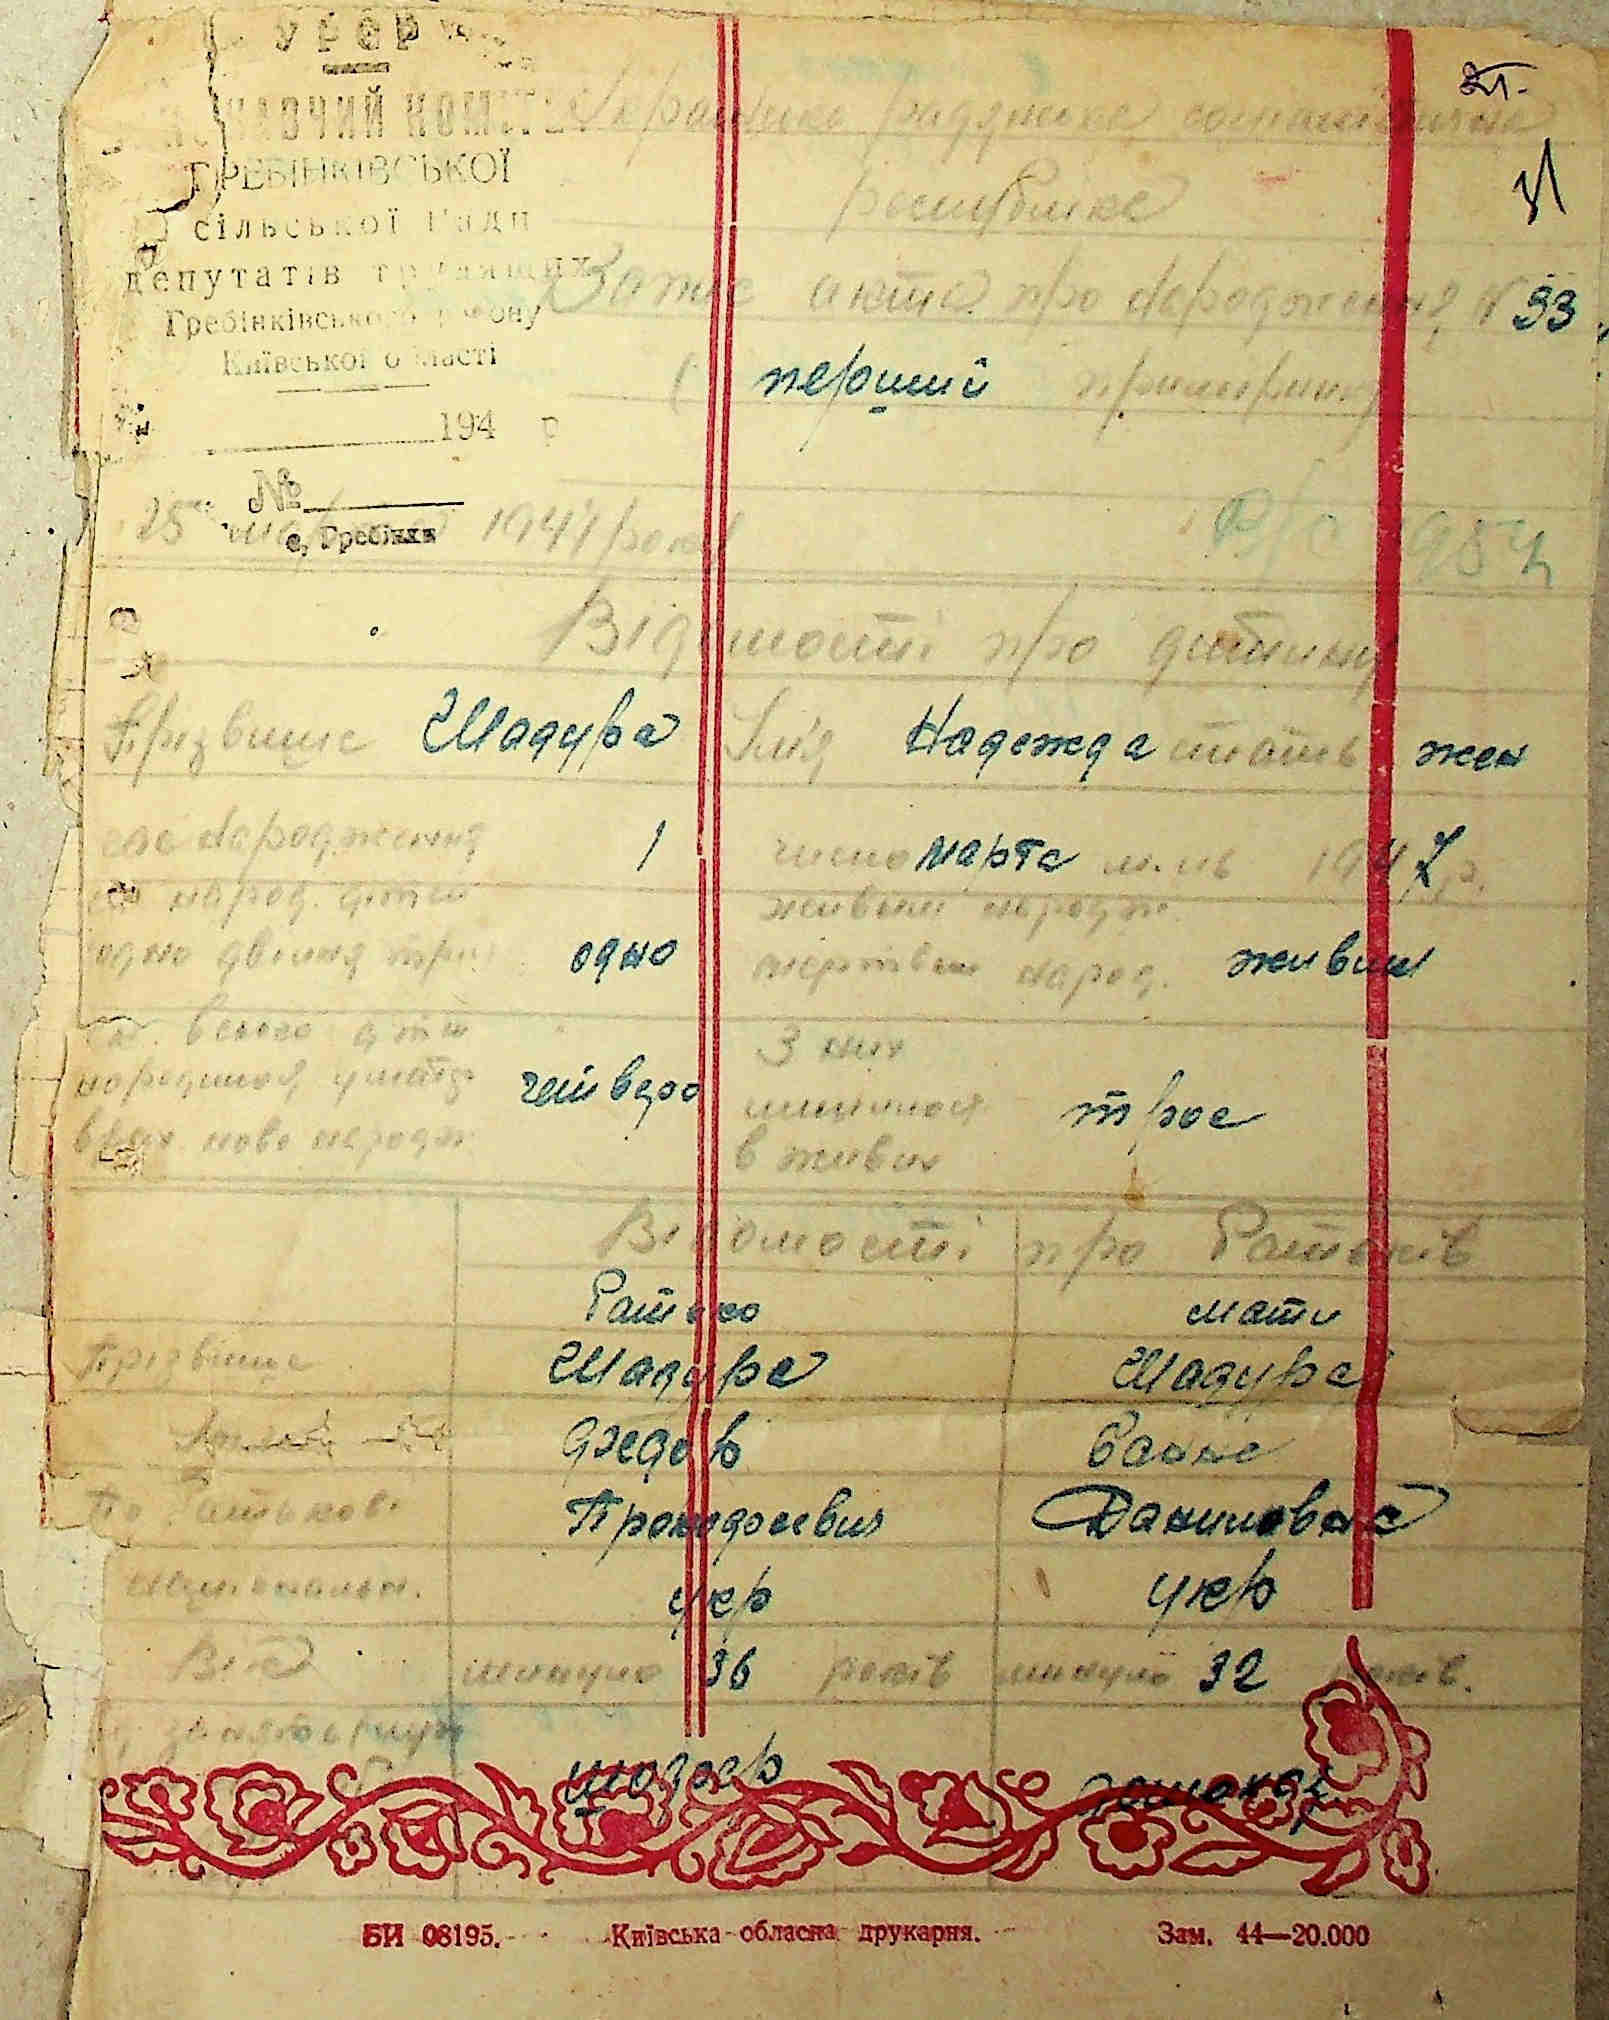 УРСР
ВИКОНАВЧИЙ КОМІТЕТ
ГРЕБІНКІВСЬКОЇ
сільської Ради
депутатів трудящих
Гребінківського району
Київської області
194 р
№
с, Гребінки
Українська радянська соціалістична
республіка
Запис акта про народження N 33
перший примірник
25 1947 року
Відомості про дитину
Прізвище Шадура Імя Надежда стать жен
час народження 1 число марта м-ць 1947 р.
одно двійня трій одно живим народж.
мертвим народ. живим
всього дітей
народилося у матері четверо
З них
лишилося
в живих трое
Відомості про батьків
батько мати
Прізвище Шадура Шадура
Федор
По батькові Даниловна
національн. укр укр
Вік минуло 36 років минуло 32 років.
БИ 08195. Київська обласна друкарня. Зам. 44—20.000